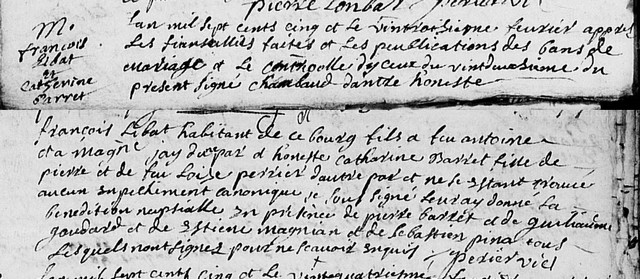 M.
françois
Libat
et
Catherine
Barret
Lan mil sept cents cinq et Le vintroisieme feuvrier appres
Les fiansailles faites et Les peublications des bans de
mariage et Le controolle dyceux du vintdeuxsieme du
present signé Chambaud dantre honneste
françois Libat habitant de ce bourg fils a feu antoine
et a magne jay dune par d honneste Catharine Barret fille de
pierre et de fue Loise perrier dautre part et ne sestant trouvé
aucun Enpechement canonique je sous signé Leur ay donne La
benediction neuptialle En presence de pierre barret et de guilliaume
goudard et de Estiene magnian et de sebastien pina tous
Lesquels n'ont signes pour ne scavoir Enquis
perier vic
Lan mil sept cents cinq et Le vintequatriesme